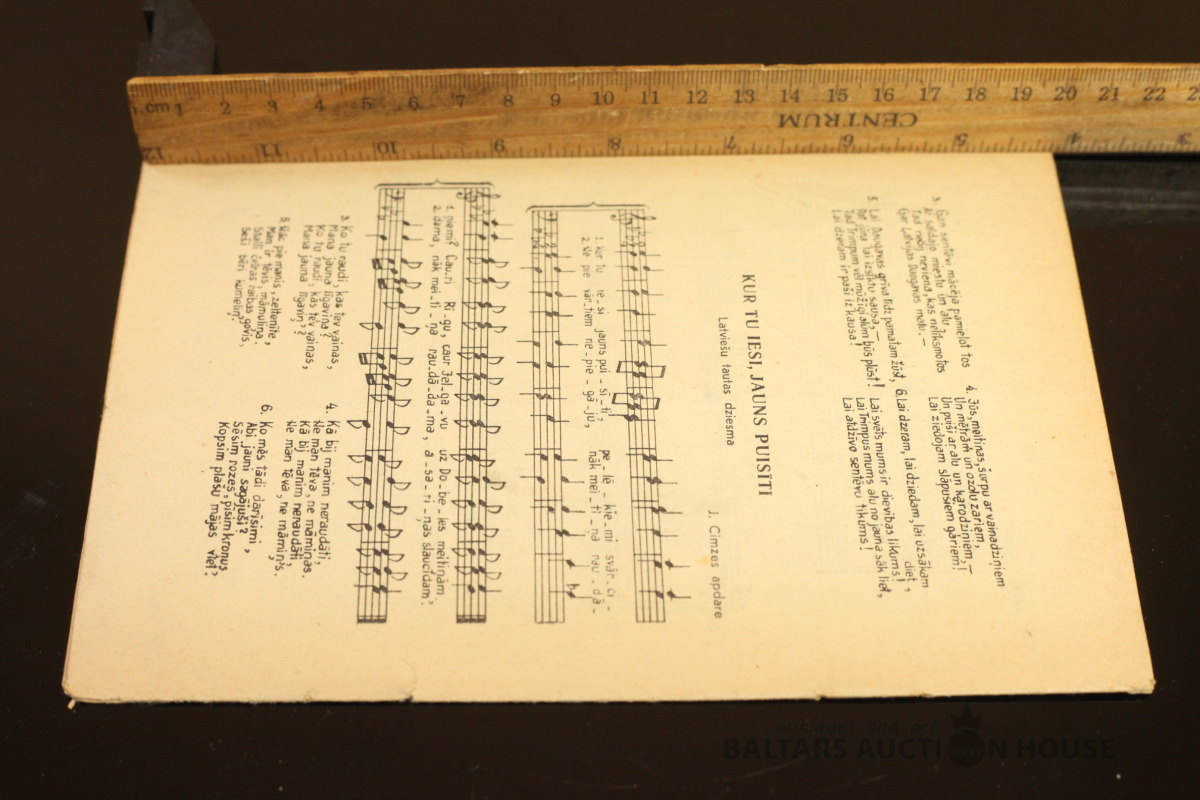 cm 1 2 3 4 5 6 7 8 9 10 11 12 13 14 15 16 17 18 19 20 21 22 2
CENTRUM
12 11 10 9 8 7 6 5 4 3
3. Gan sentēvi mācēja pamielot tos
Ar saldajo miestu un alu,
Tad nebij neviena, kas nelīksmotos
Gar Latvijas Daugavas malu. —
4. Jūs, meitiņas, šurpu ar vainadziņiem
Un mētrām un ozolu zariem,
Un puiši ar alu un kārodziņiem, —
Lai ziedojam slāpušiem gariem!
5. Lai Daugavas grīva līdz pamatam žūst,
Bet jūra lai izsīktu sausa, —
Tad Trimpum vēl mūžīgi alum būs plūst!
Lai dziedam ir paši iz kausa!
6. Lai dzeram, lai dziedam, lai uzsākam diet,
Lai svēts mums ir dievības likums!
Lai Trimpus mums alu no jauna sāk liet,
Lai atdzīvo sentēvu tikums!
KUR TU IESI, JAUNS PUISĪTI
Latviešu tautas dziesma
J. Cimzes apdare
1. Kur tu ie_si jauns pui_sī_ti, pe_lē_kie_mi svār_ci_
2. Ne pie vār_tiem ne_pie_gā_ju, nāk mei_ti_ņa rau_dā_
1. ņiemi? Cau_ri Rī_gu, caur Jel_ga_vu uz Do_be_les meitiņām,
2. dama, nāk mei_ti_ņa rau_dā_da_ma, a_sa_ri_ņas slaucīdam',
3. Ko tu raudi, kas tev vainas,
Mana jauna līgaviņa?
Ko tu raudi, kas tev vainas,
Mana jauna līgaviņ'?
4. Kā bij manim neraudāti,
Ne man tēva, ne māmiņas.
Kā bij manim neraudāti,
Ne man tēva, ne māmiņ's.
5. Nāc pie manis, zeltenīte,
Man ir tēvis, māmuliņa.
Stallī četras raibas govis,
Seši bēri kumeliņ'.
6. Ko mēs tādi darīsimi,
Abi jauni sagājuši?
Sēsim rozes, pīsim kroņus,
Kopsim plašu mājas viet'.
antiques and art
BALTARS AUCTION HOUSE